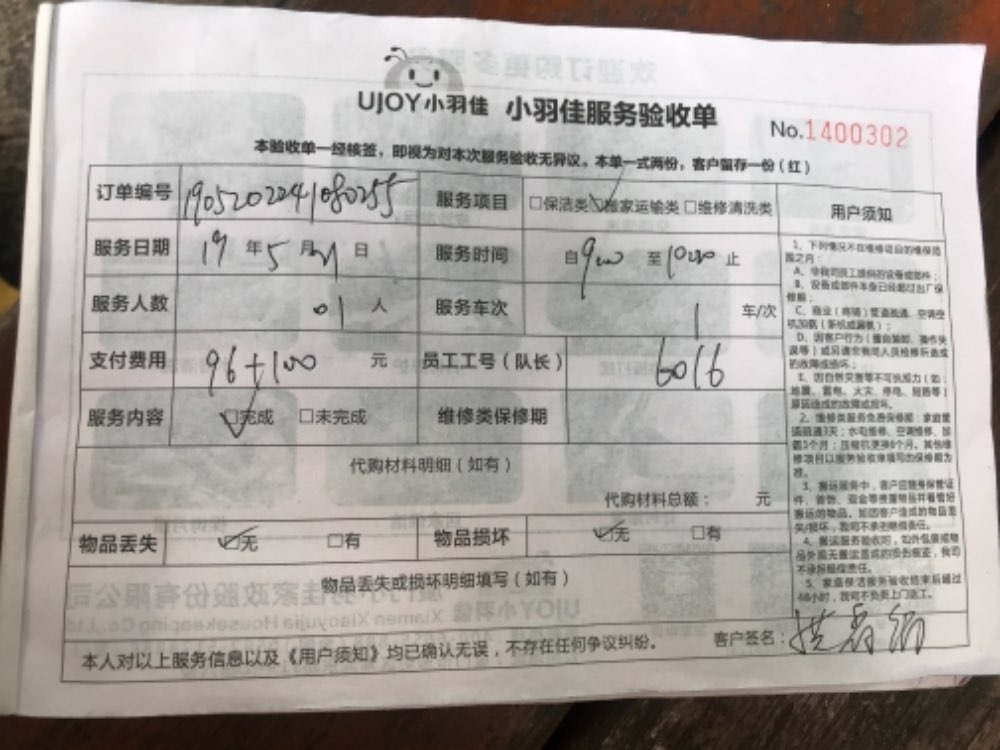 UJOY小羽佳 小羽佳服务验收单
No.1400302
本验收单一经核签，即视为对本次服务验收无异议。本单一式两份，客户留存一份（红）
订单编号 1905202241080255 服务项目 □保洁类 □搬家运输类 □维修清洗类
服务日期 19 年 5 月 21 日 服务时间 自 9:00 至 10:00 止
服务人数 01 人 服务车次 1 车/次
支付费用 96+100 元 员工工号（队长） 6016
服务内容 □完成 □未完成 维修类保修期
代购材料明细（如有）
代购材料总额： 元
物品丢失 □无 □有 物品损坏 □无 □有
物品丢失或损坏明细填写（如有）
本人对以上服务信息以及《用户须知》均已确认无误，不存在任何争议纠纷。
客户签名：
用户须知
1、下列情况不在维修项目的维保范
围之内：
A、非我司员工提供的设备或部件；
B、设备或部件本身已经超过出厂保
修期；
C、商业（商铺）管道疏通、空调空
机加氨（新机或漏氨）；
D、因客户行为（擅自装卸、操作失
误等）或另请非我司人员检修所造成
的故障或损坏；
E、因自然灾害等不可抗拒力（如：
地震、雷电、火灾、停电、短路等）
原因造成的故障或损坏。
2、维修类服务免费保修期：家庭管
道疏通3天；水电维修、空调维修、加
氨3个月；压缩机更换6个月。其他维
修项目以服务验收单填写的保修期为
准。
3、搬运服务中，客户应随身保管证
件、首饰、现金等贵重物品并看管好
搬运的物品。如因客户造成的物品丢
失/损坏，我司不承担赔偿责任。
4、搬运服务验收时，如外包装或物
品外观无搬运造成的损伤痕迹，我司
不承担赔偿责任。
5、家庭保洁服务验收结束后超过
48小时，我司不负责上门返工。
欢迎订购更多服务
厦门小羽佳家政股份有限公司
Xiamen Xiaoyujia Housekeeping Co.,Ltd
UJOY小羽佳